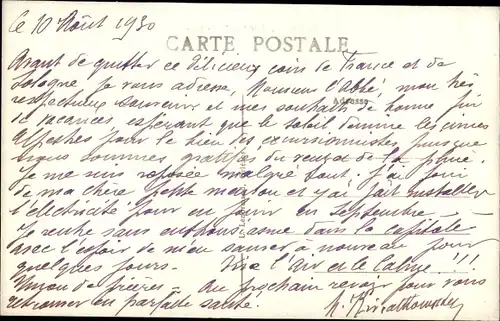 Le 10 Août 1930
CARTE POSTALE
Avant de quitter ce délicieux coin de France et de
Sologne je vous adresse, Monsieur l'Abbé, mon très
respectueux souvenir et mes souhaits de bonne fin
Adresse
de vacances espérant que le soleil domine les cimes
Alpestres pour le bien des excursionnistes puisque
nous sommes gratifiés du vent et de la pluie.
Je me suis reposée malgré tout. J'ai joui
de ma chère petite maison et j'ai fait installer
l'électricité pour en jouir en Septembre —
Je rentre sans enthousiasme dans la capitale
avec l'espoir de m'en sauver à nouveau pour
quelques jours — Vive l'Air et le Calme !!!
Union de prières — Au prochain revoir pour vous
retrouver en parfaite santé.